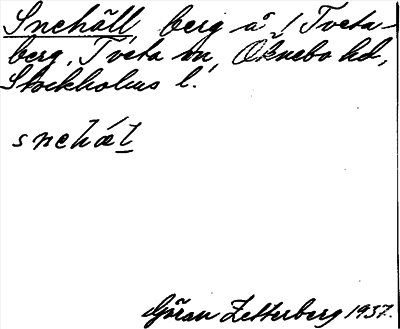 Snehäll, berg å / Tveta-
berg, Tveta sn, Öknebo hd,
Stockholms l.
snehæ̀t
Göran Zetterberg 1937.